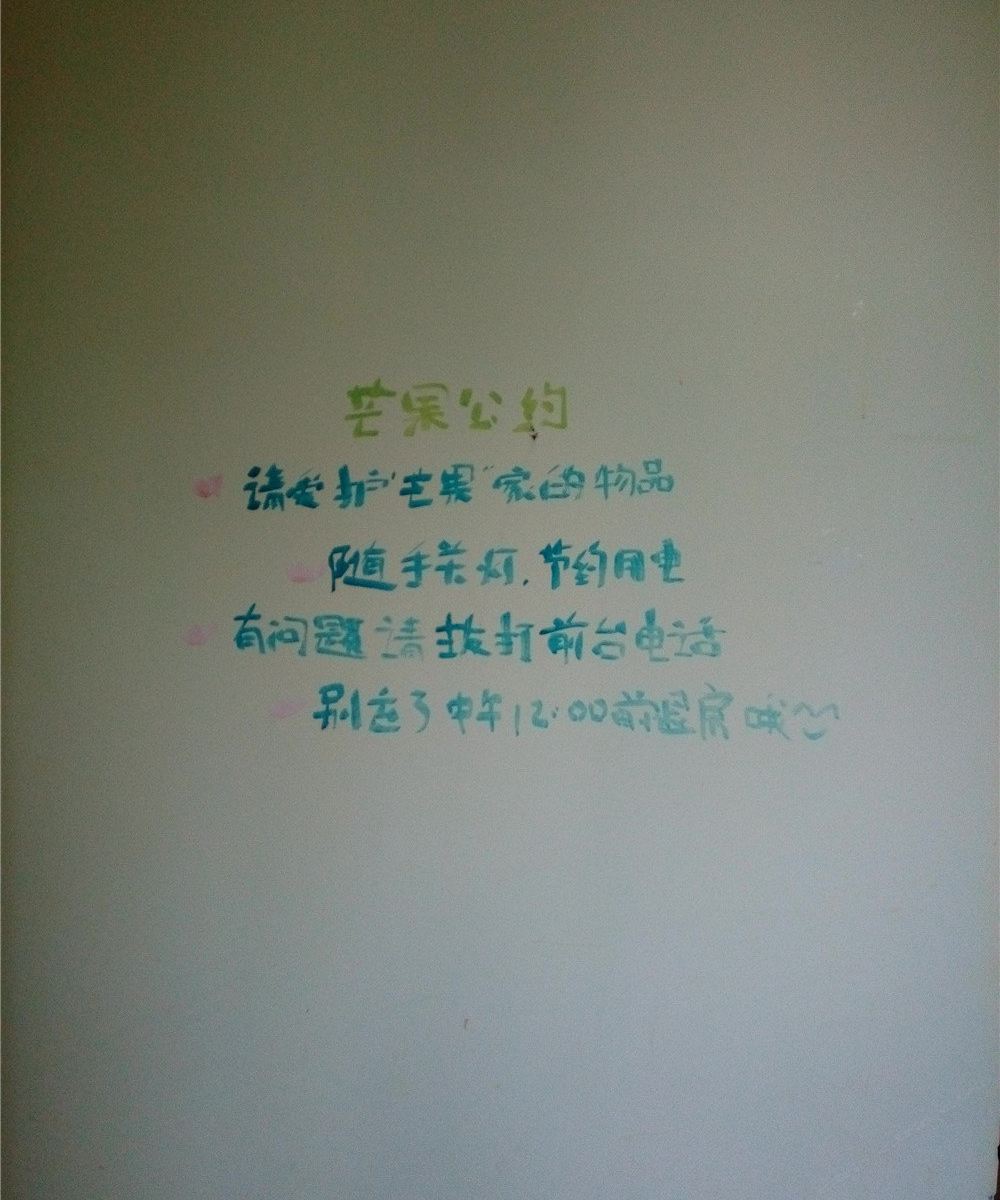 芒果公约
请爱护"芒果"家的物品
随手关灯,节约用电
有问题请拨打前台电话
别忘了中午12:00前退房哦~